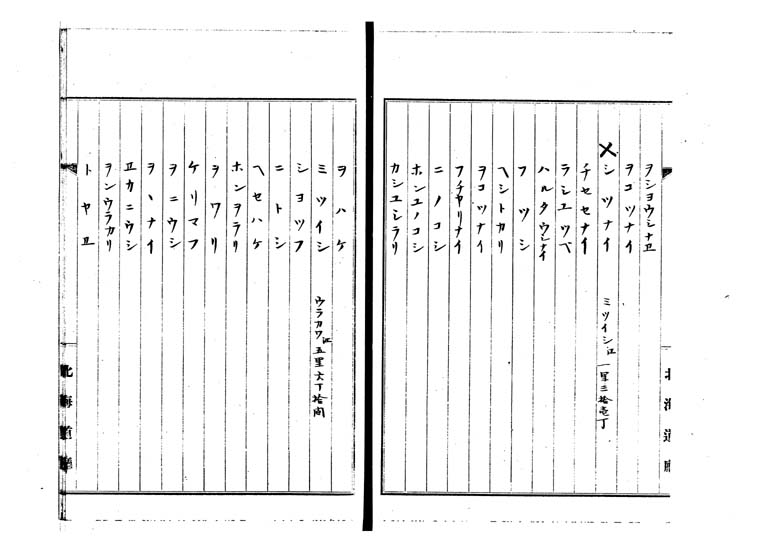 ヲショウシナヱ
ヲコツナイ
シツナイ ミツイシ江 一里三拾壱丁
チセセナイ
ラシユツベ
ハルタウシナイ
フツシ
ヘシトカリ
ヲコツナイ
フチヤリナイ
ニノコシ
ホンユノコシ
カシユシラリ
北海道廳
ヲハケ
ミツイシ ウラカワ江 五里六丁拾間
ショツフ
ニトシ
ヘセハケ
ホンヲラリ
ヲワリ
ケリマフ
ヲニウシ
ヲヽナイ
ヱカニウシ
ヲンウラカリ
トヤヱ
北海道廳